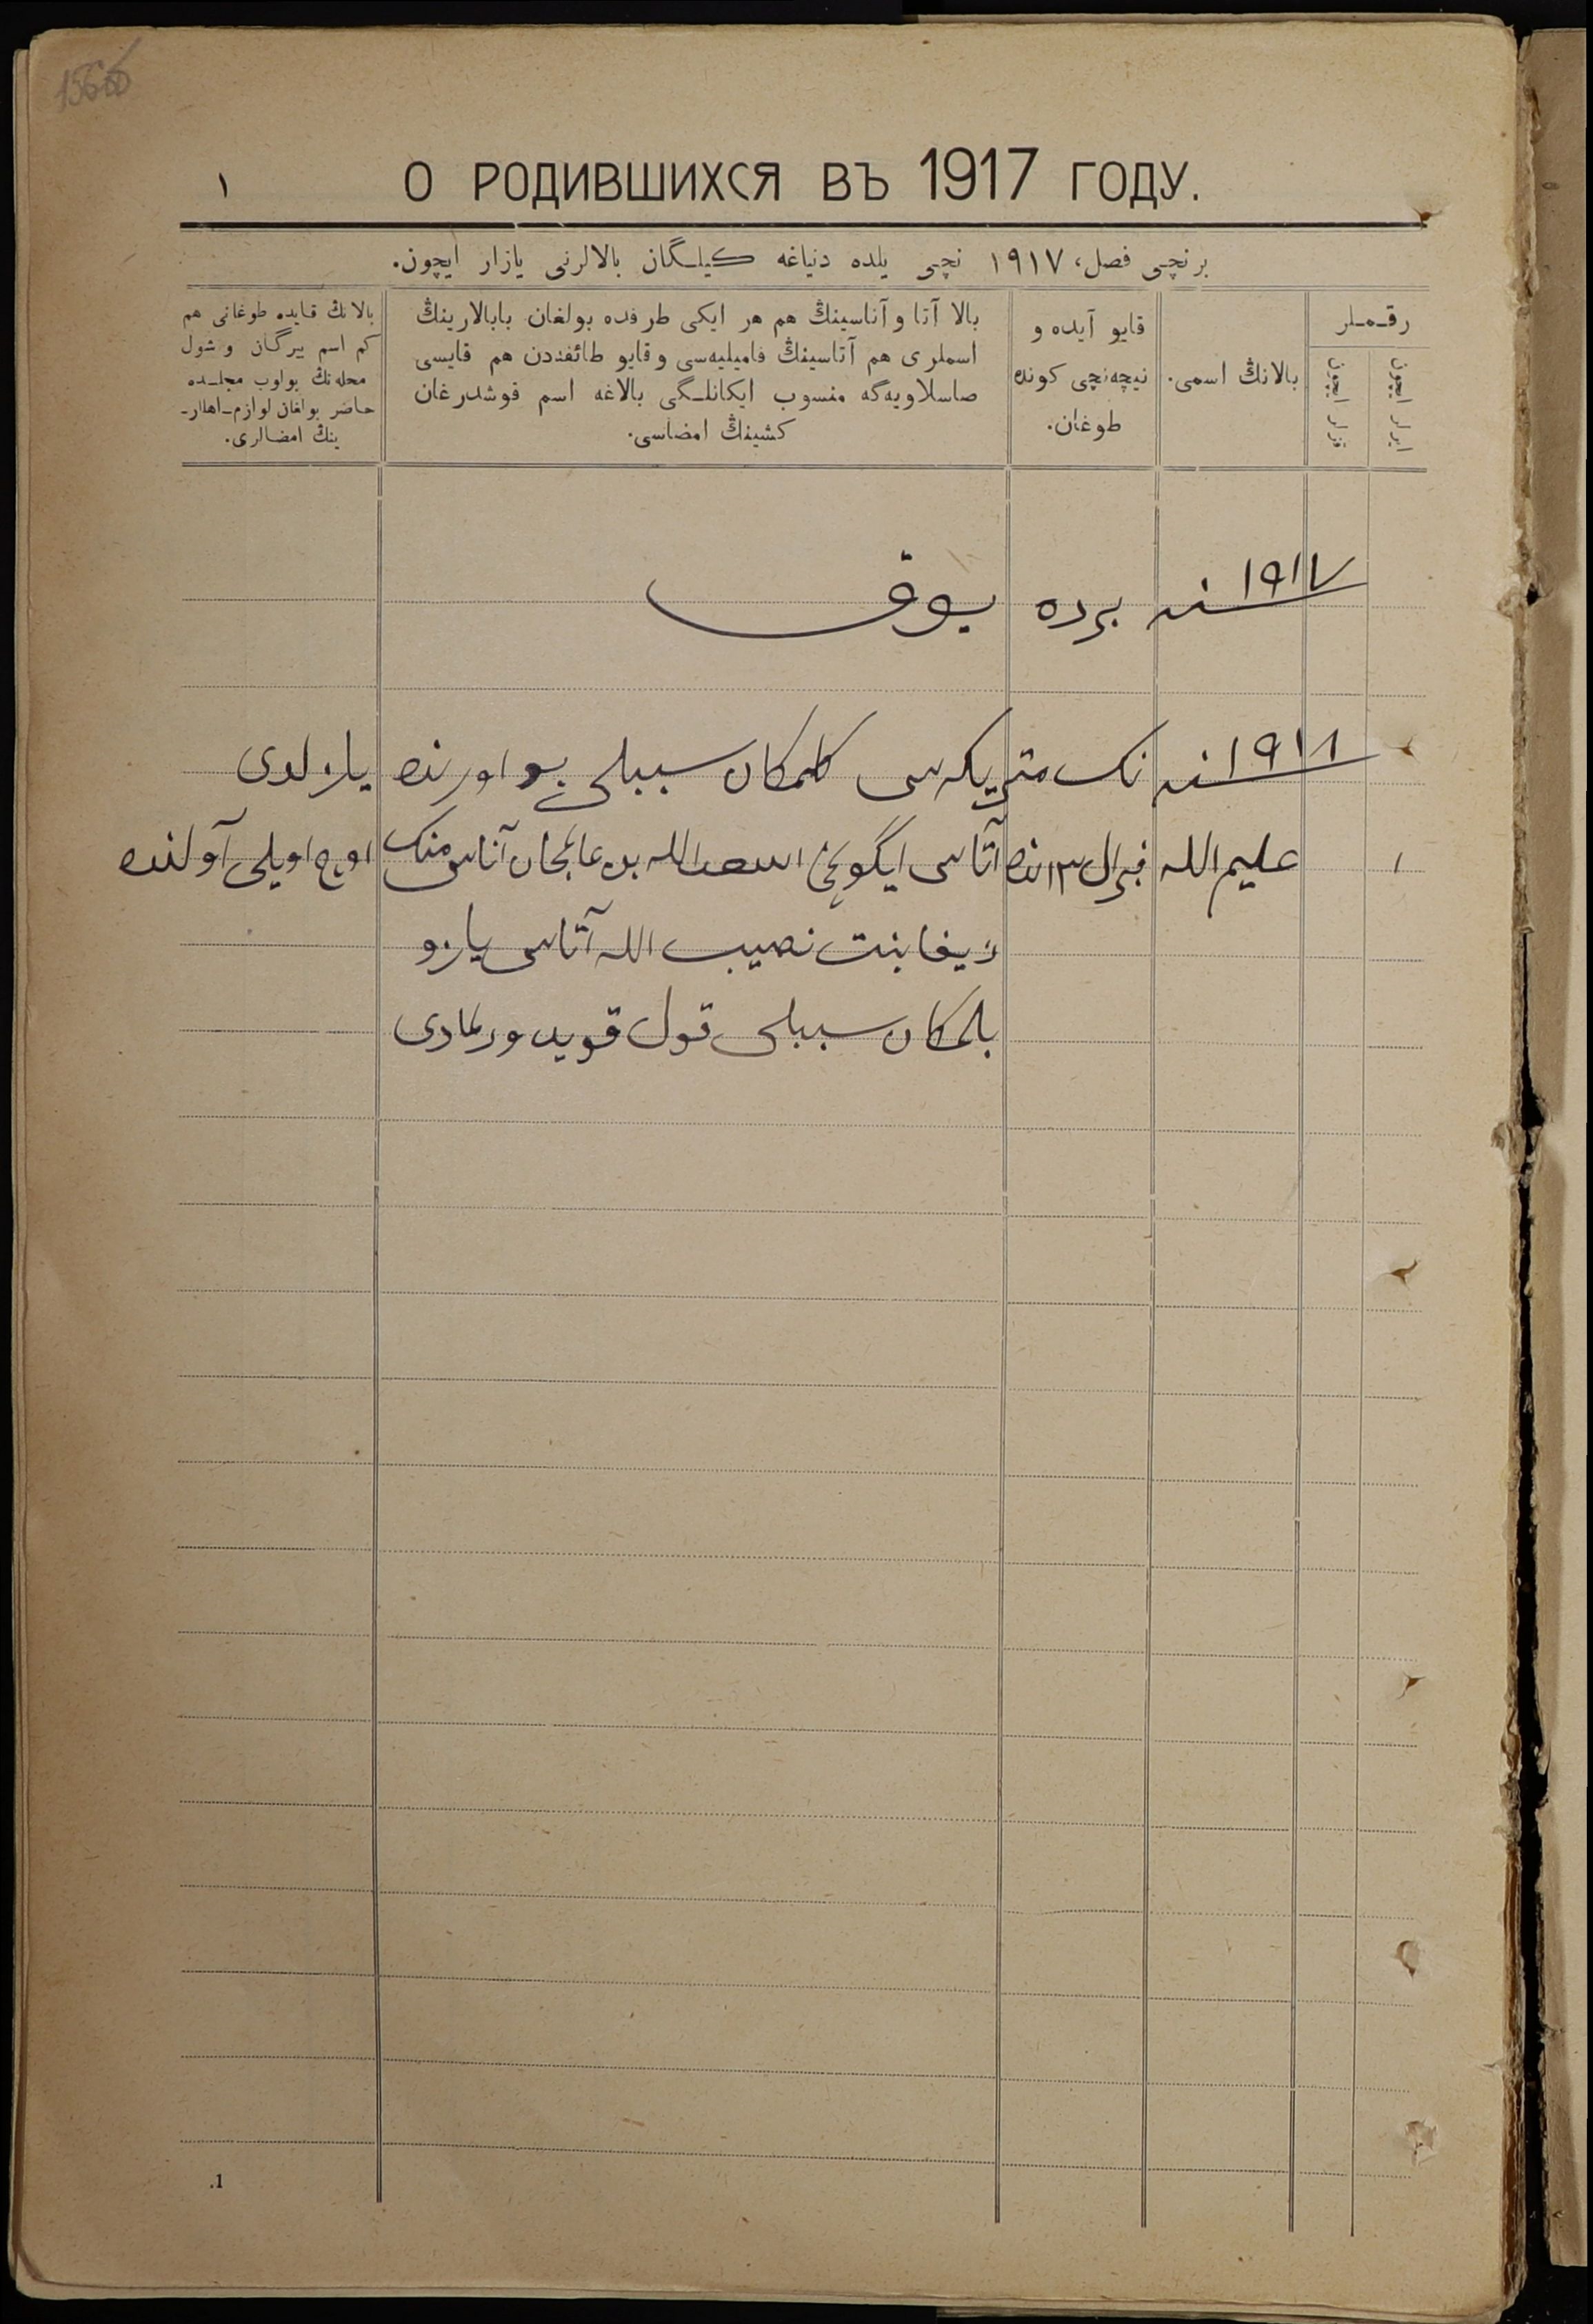 156об
О РОДИВШИХСЯ ВЪ 1917 ГОДУ.
١
برنچی فصل، ١٩١٧ نچی یلده دنیاغه کیلـگان بالالرنی یازار ایچون.
رقـمـلر
ایرلر ایچون
قزلر ایچون
بالانڭ اسمی.
قایو آیده و
نیچه‌نچی کونده
طوغان.
بالا آتا و آناسینڭ هم هر ایکی طرفده بولغان بابالارینڭ
اسملری هم آتاسینڭ فامیلیه‌سی و قایو طائفه‌دن هم قایسی
صاسلاویه‌گه منسوب ایکانلـگی بالاغه اسم قوشدرغان
کشینڭ امضاسی.
بالانڭ قایده طوغانی هم
کم اسم بیرگـان و شول
محله‌نڭ بولوب مجلـسده
حاضر بولغان لوازم اهللر-
ینڭ امضـالری.
١٩١٧ سنه برده یوق
١٩١٨ سنه نک متریکه سی کلمکان سببلی بو اورنده یازلدی
١ علیم الله ١٣نده آتاسی اسعدالله بن عالمجان آناس اوچ اویلی آولنده
بنت نصیب الله آتاسی یازو
بلمکان سببلی قول قویدورلمادی
1.